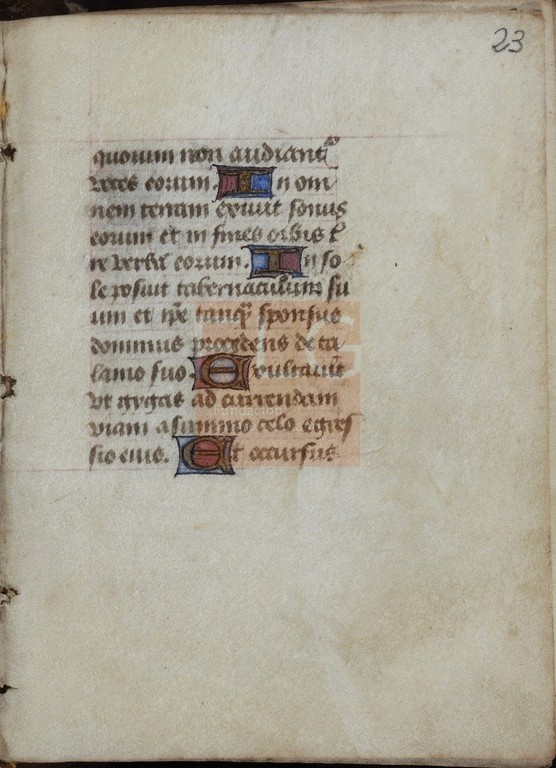 23
quorum non audiant᷑
voces eorum. In om
nem terram exivit sonus
eorum et in fines orbis t᷑
re verba eorum. In so
le posuit tabernaculum su
um et ip̄e tanq̄ sponsus
dominus procedens de ta
lamo suo. Exultavit
vt gygas ad currendam
viam a summo celo egres
sio eius. Et occursus
Fundación